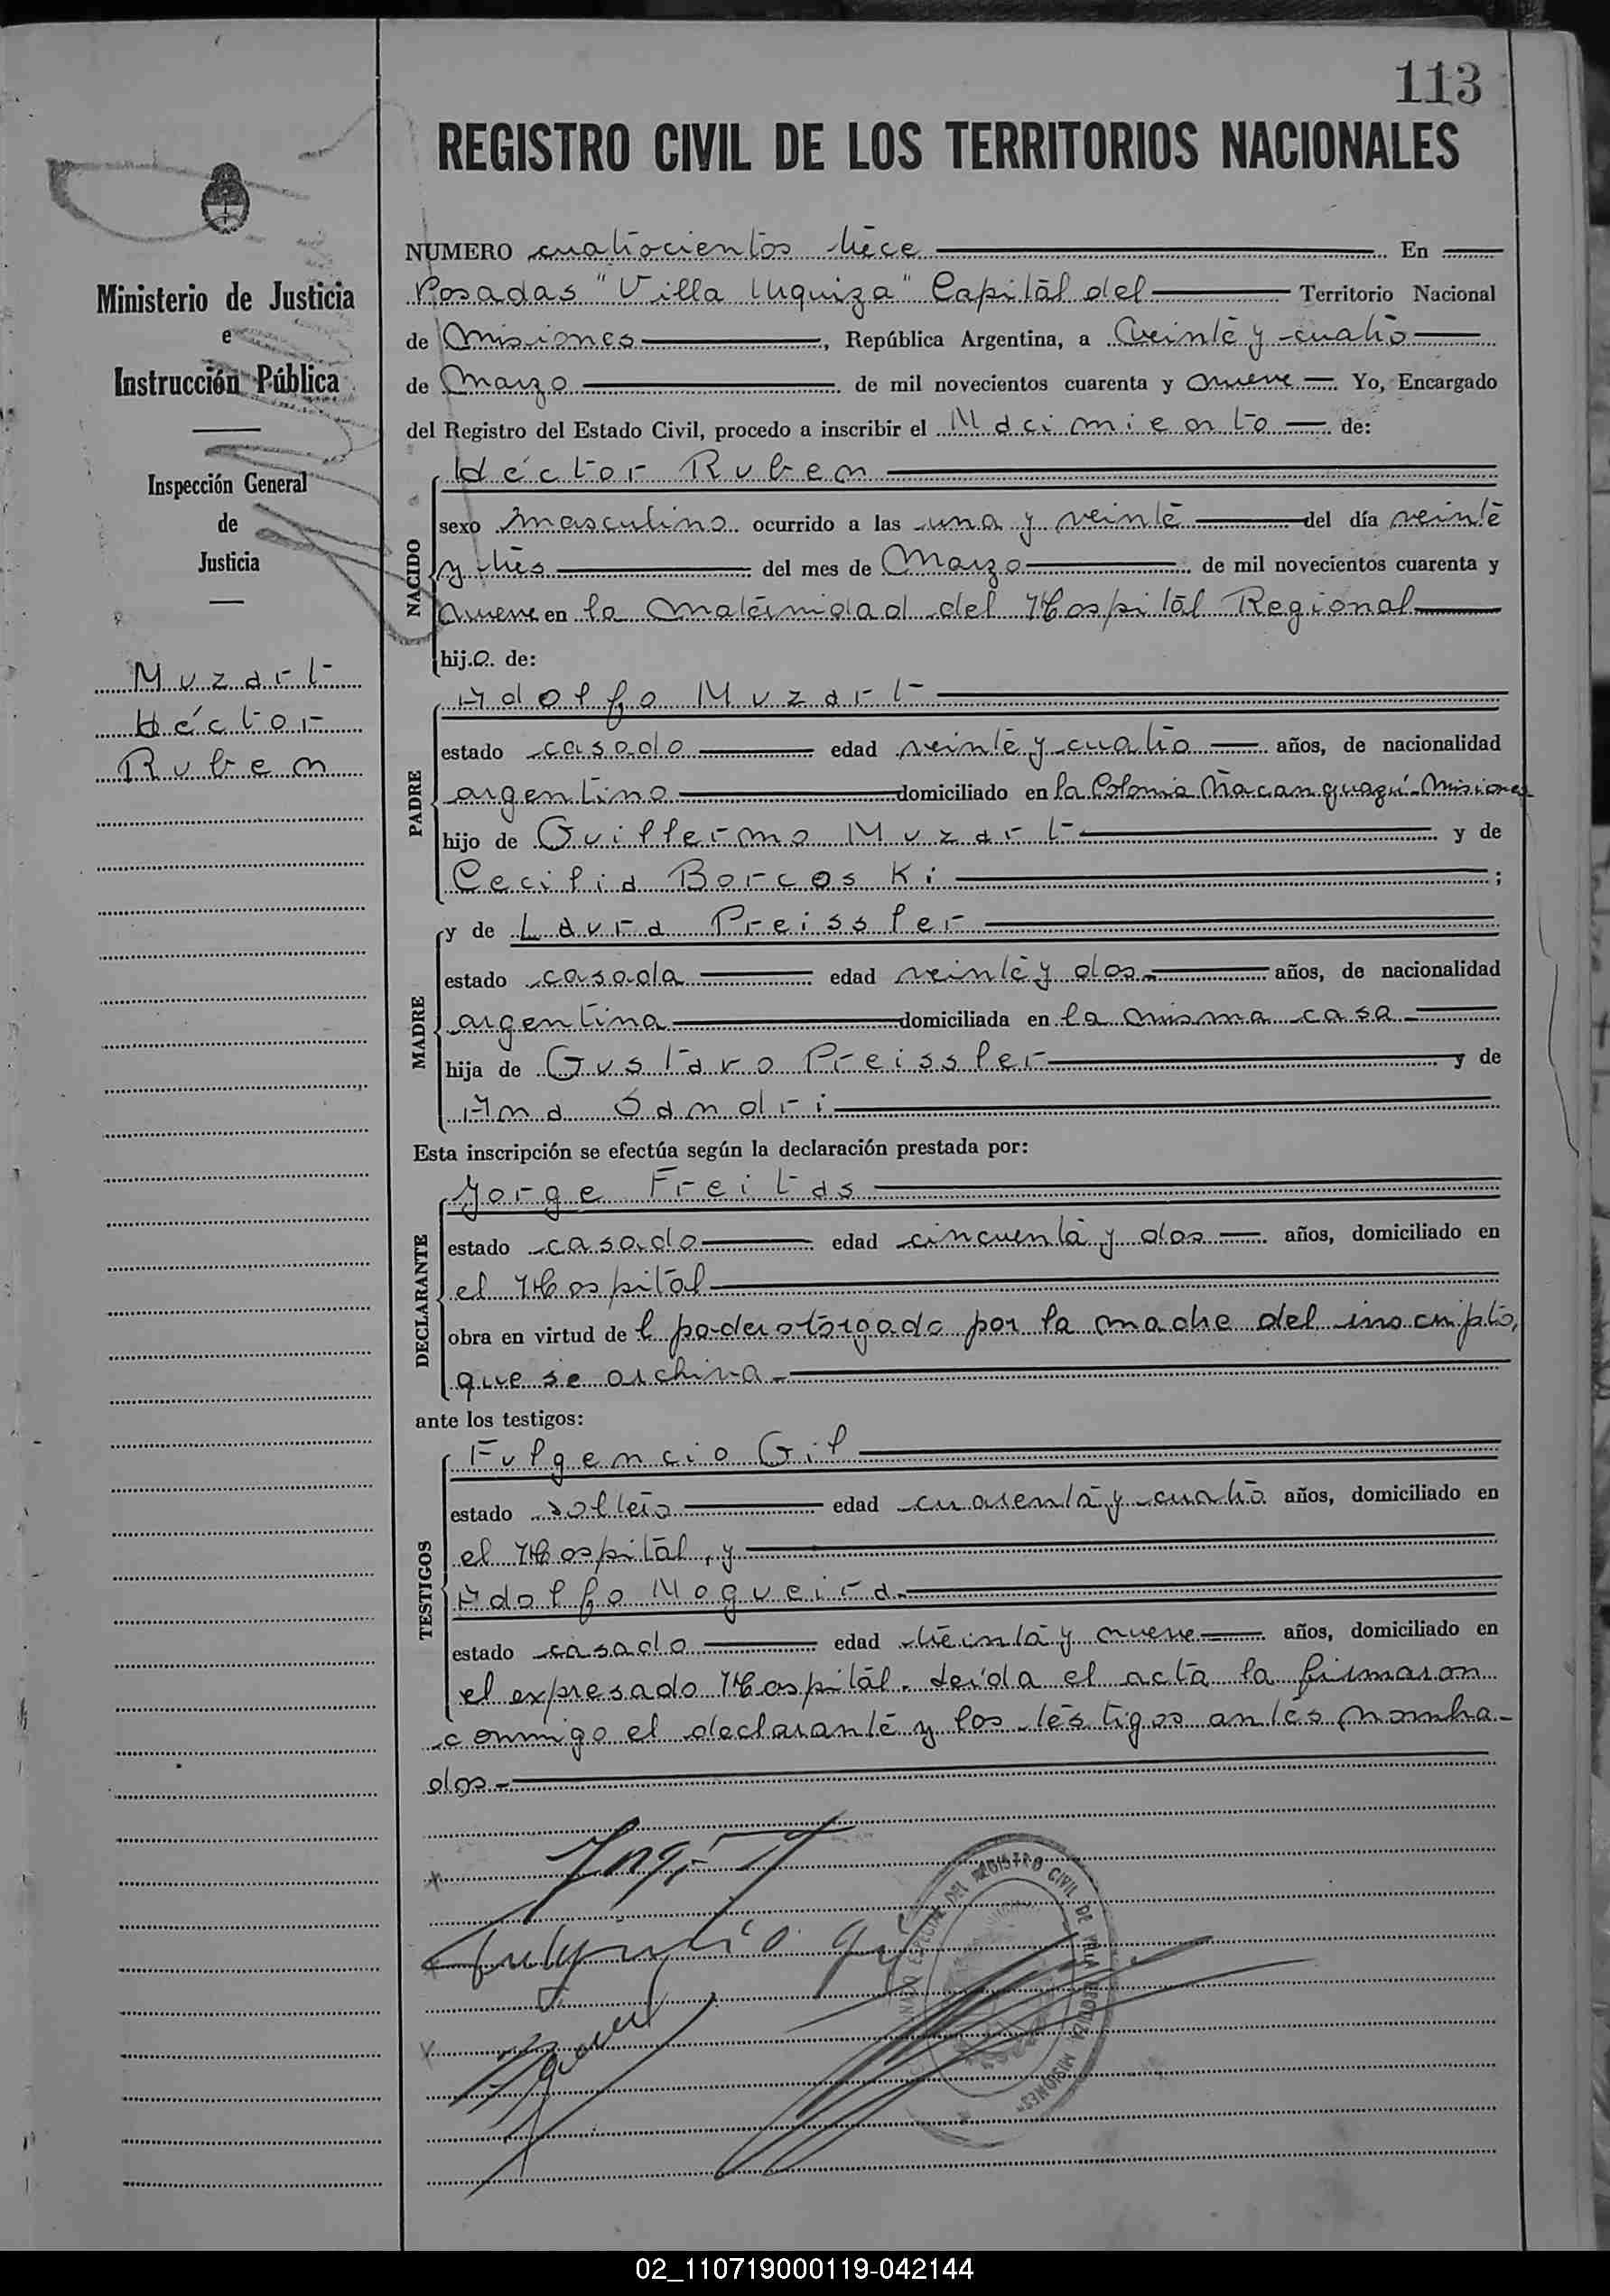 113
REGISTRO CIVIL DE LOS TERRITORIOS NACIONALES
Ministerio de Justicia
e
Instrucción Pública
Inspección General
de
Justicia
Muzart
Héctor
Ruben
NUMERO cuatrocientos trece En
Posadas "Villa Urquiza" Capital del Territorio Nacional
de Misiones, República Argentina, a veinte y cuatro
de Marzo de mil novecientos cuarenta y nueve. Yo, Encargado
del Registro del Estado Civil, procedo a inscribir el Nacimiento de:
NACIDO
Héctor Ruben
sexo masculino ocurrido a las una y veinte del día veinte
y tres del mes de Marzo de mil novecientos cuarenta y
nueve en la maternidad del Hospital Regional
hijo de:
PADRE
Adolfo Muzart
estado casado edad veinte y cuatro años, de nacionalidad
argentino domiciliado en la Colonia Ñacanguazú-Misiones
hijo de Guillermo Muzart y de
Cecilia Borcoski;
MADRE
y de Laura Preissler
estado casada edad veinte y dos años, de nacionalidad
argentina domiciliada en la misma casa
hija de Gustavo Preissler y de
Ana Sandri
Esta inscripción se efectúa según la declaración prestada por:
DECLARANTE
Jorge Freitas
estado casado edad cincuenta y dos años, domiciliado en
el Hospital
obra en virtud del poder otorgado por la madre del inscripto,
que se archiva
ante los testigos:
TESTIGOS
Fulgencio Gil
estado soltero edad cuarenta y cuatro años, domiciliado en
el Hospital, y
Adolfo Nogueira
estado casado edad treinta y nueve años, domiciliado en
el expresado Hospital. Leída el acta la firmaron
conmigo el declarante y los testigos antes nombra-
dos
Fulgencio Gil
DEL REGISTRO CIVIL DE VILLA URQUIZA MISIONES
02_110719000119-042144